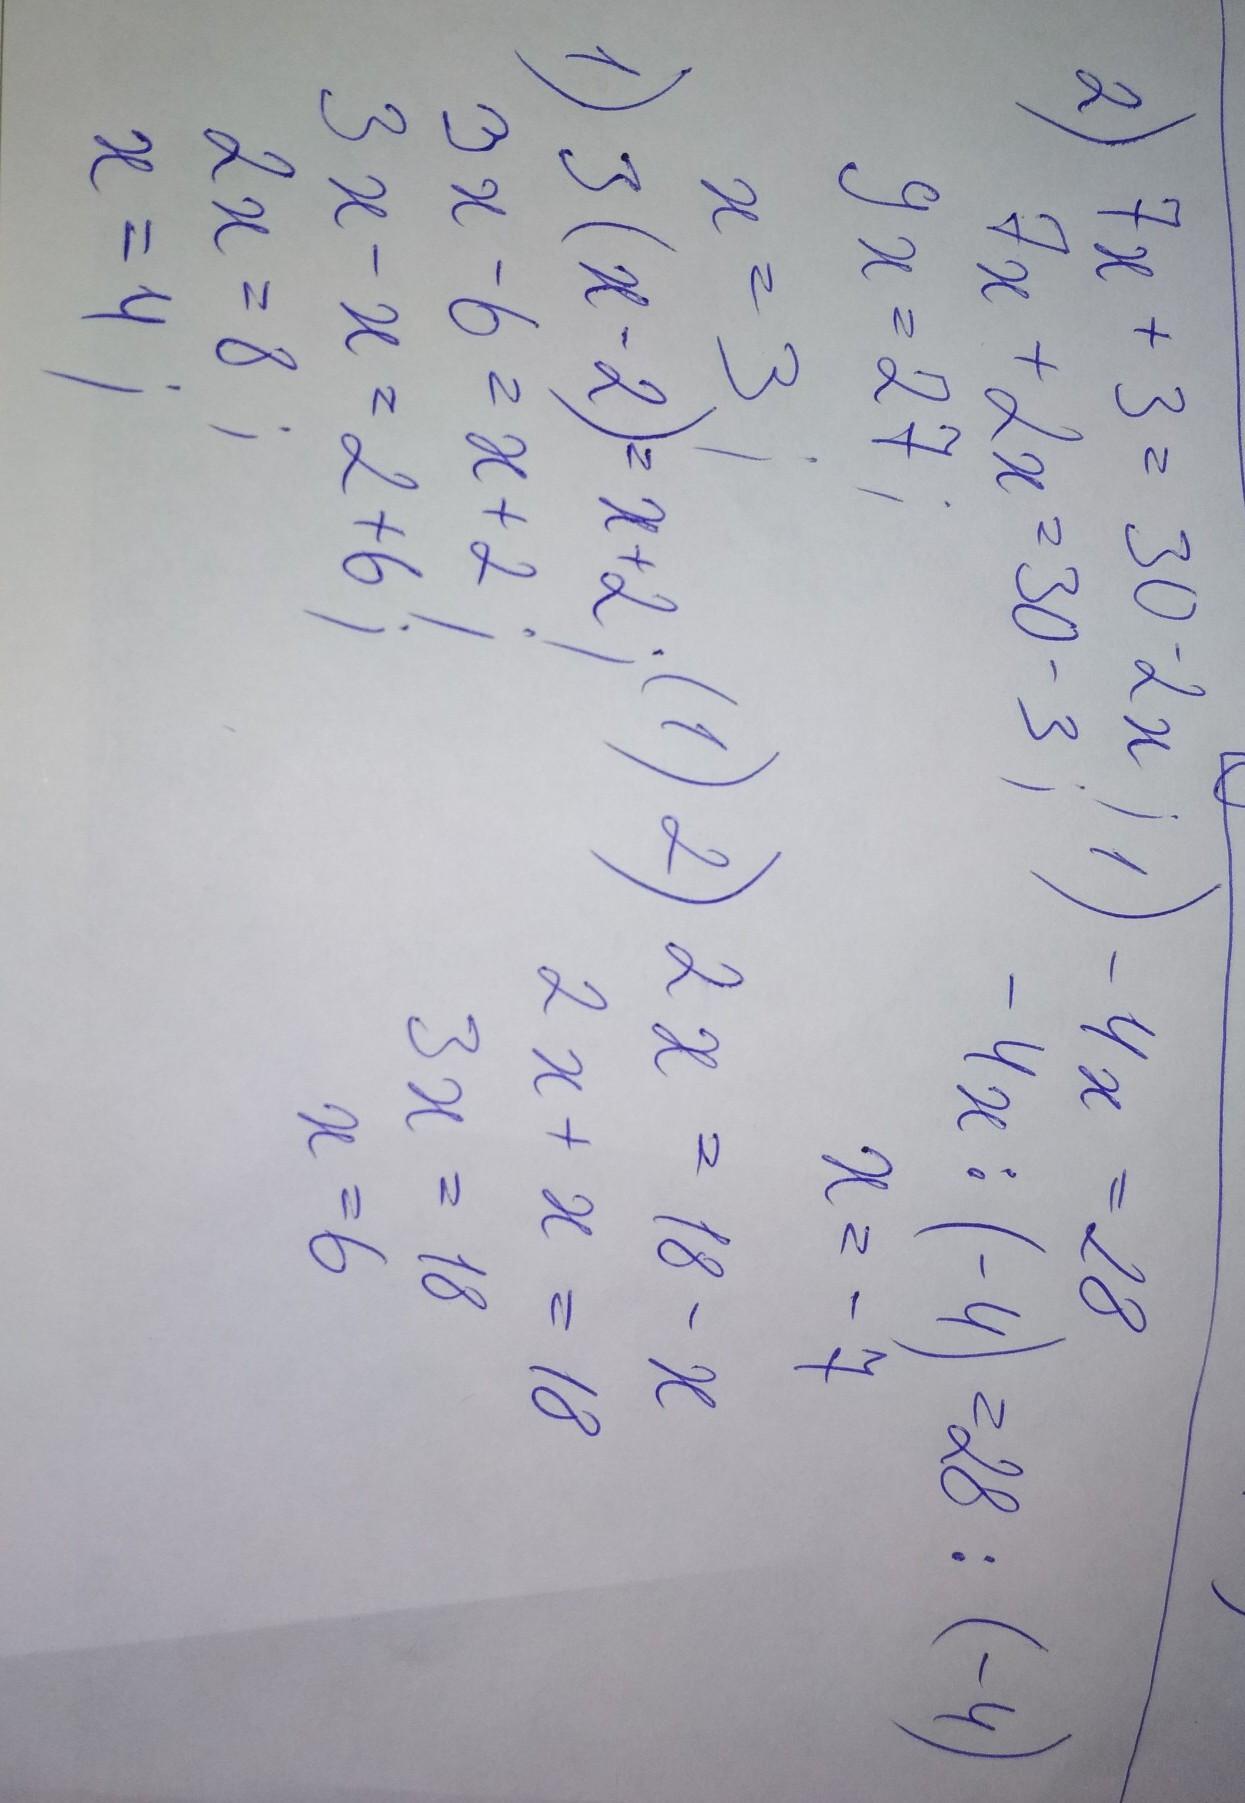 2) 7x + 3 = 30 - 2x ; 1) - 4x = 28
7x + 2x = 30 - 3 ; - 4x : (-4) = 28 : (-4)
9x = 27 ; x = - 7
x = 3 ;
1) 3(x - 2) = x + 2 ; (1) 2) 2x = 18 - x
3x - 6 = x + 2 ; 2x + x = 18
3x - x = 2 + 6 ; 3x = 18
2x = 8 ; x = 6
x = 4 ;